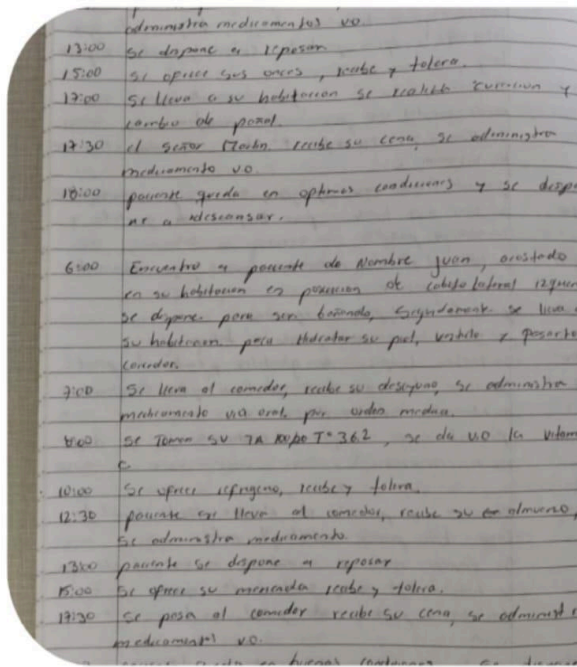 administra medicamentos vo
13:00 se dispone a reposar
15:00 se ofrece sus onces, recibe y tolera.
17:00 Se lleva a su habitacion se realiza curacion y
cambio de pañal.
17:30 el señor recibe su cena, se administra
medicamento vo.
18:00 paciente queda en optimas condiciones y se dispo
ne a descansar.
6:00 Encuentro a paciente de Nombre Juan, acostado
en su habitacion en posicion de cubito lateral izquier
se dispone para ser bañando, seguidamente se lleva a
su habitacion para hidratar su piel, vestirle y pasarlo
comedor.
7:00 Se lleva al comedor, recibe su desayuno, se administra
medicamento via oral por orden medica.
8:00 se Toman su TA T° 36.2, se da v.o la vitam
c
10:00 se ofrece refrigerio, recibe y tolera.
12:30 paciente se lleva al comedor, recibe su almuerzo,
se administra medicamento.
13:00 paciente se dispone a reposar
15:00 se ofrece su merienda recibe y tolera.
17:30 se pasa al comedor recibe su cena, se administra
medicamentos v.o.